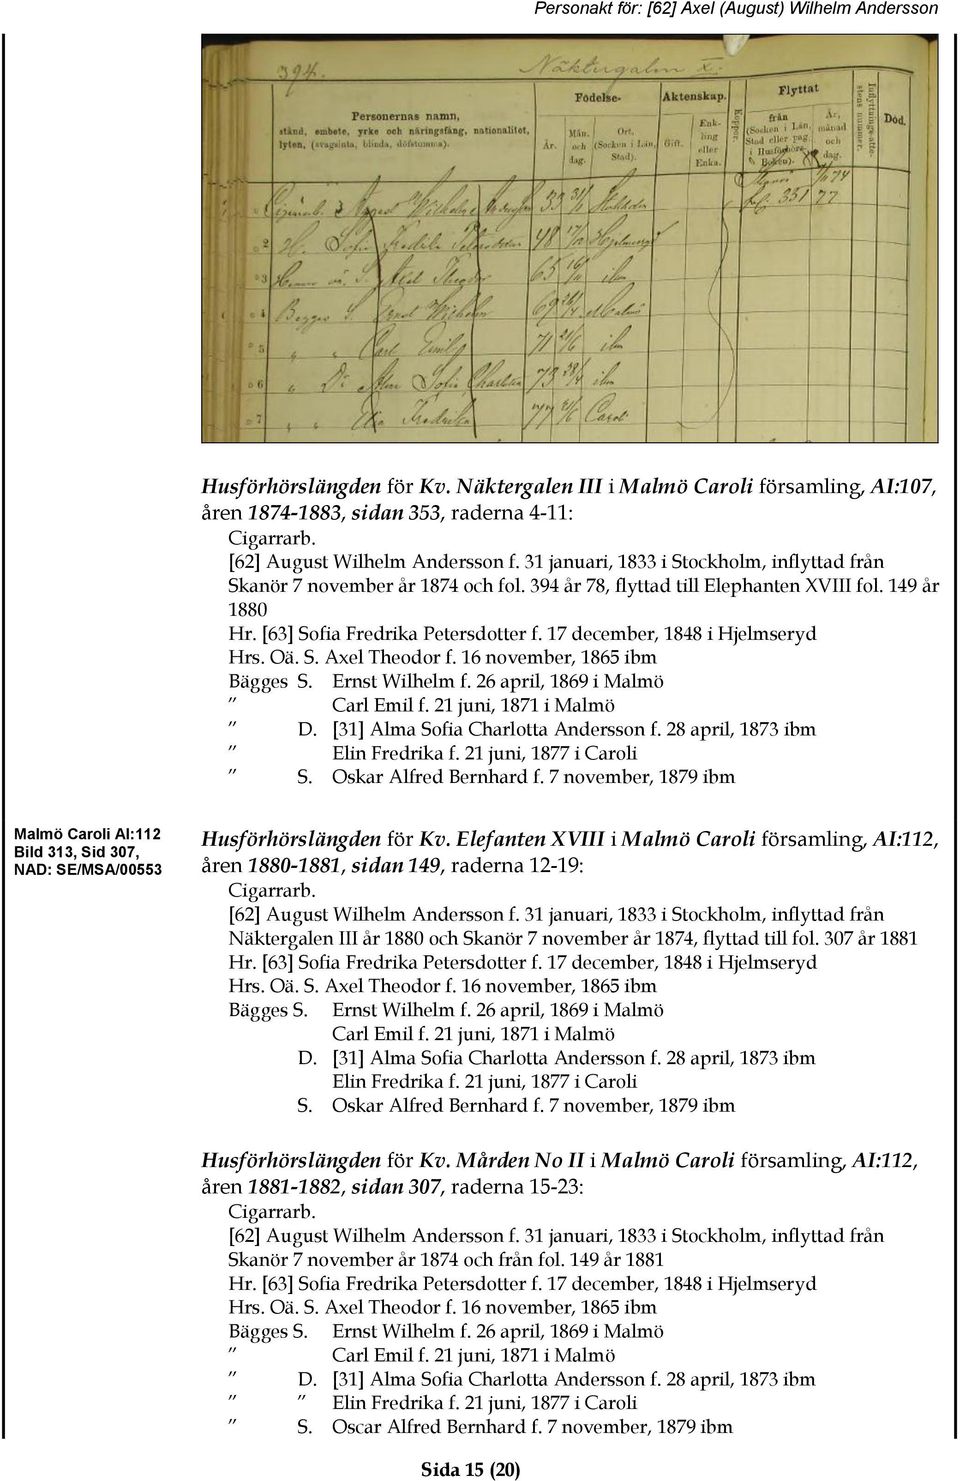 Personakt för: [62] Axel (August) Wilhelm Andersson
394. Näktergalen X:
Personernas namn,
stånd, embete, yrke och näringsfång, nationalitet,
lyten, (svagsinta, blinda, döfstumma).
Födelse-
År.
Mån.
och
dag.
Ort.
(Socken i Län,
Stad).
Äktenskap.
Gift.
Enk-
ling
eller
Enka.
Koppor.
Flyttat
från
(Socken i Län,
Stad eller pag.
i Husförhörs-
Boken).
År,
månad
och
dag.
Inflyttnings-atte-
stens nummer.
Död.
Skanör 7/11 74
1 Cigarrarb. August Wilhelm Andersson 33 31/1 Stockholm fol. 351 77
2 H. Sofia Fredrika Petersdotter 48 17/12 Hjelmseryd
3 Hennes oä. S. Axel Theodor 65 16/11 ibm
4 Bägges S. Ernst Wilhelm 69 26/4 Malmö
5 " " Carl Emil 71 21/6 ibm
6 " Dr Alma Sofia Charlotta 73 28/4 ibm
7 " " Elin Fredrika 77 21/6 Caroli
Husförhörslängden för Kv. Näktergalen III i Malmö Caroli församling, AI:107,
åren 1874-1883, sidan 353, raderna 4-11:
Cigarrarb.
[62] August Wilhelm Andersson f. 31 januari, 1833 i Stockholm, inflyttad från
Skanör 7 november år 1874 och fol. 394 år 78, flyttad till Elephanten XVIII fol. 149 år
1880
Hr. [63] Sofia Fredrika Petersdotter f. 17 december, 1848 i Hjelmseryd
Hrs. Oä. S. Axel Theodor f. 16 november, 1865 ibm
Bägges S. Ernst Wilhelm f. 26 april, 1869 i Malmö
" Carl Emil f. 21 juni, 1871 i Malmö
" D. [31] Alma Sofia Charlotta Andersson f. 28 april, 1873 ibm
" Elin Fredrika f. 21 juni, 1877 i Caroli
" S. Oskar Alfred Bernhard f. 7 november, 1879 ibm
Malmö Caroli AI:112
Bild 313, Sid 307,
NAD: SE/MSA/00553
Husförhörslängden för Kv. Elefanten XVIII i Malmö Caroli församling, AI:112,
åren 1880-1881, sidan 149, raderna 12-19:
Cigarrarb.
[62] August Wilhelm Andersson f. 31 januari, 1833 i Stockholm, inflyttad från
Näktergalen III år 1880 och Skanör 7 november år 1874, flyttad till fol. 307 år 1881
Hr. [63] Sofia Fredrika Petersdotter f. 17 december, 1848 i Hjelmseryd
Hrs. Oä. S. Axel Theodor f. 16 november, 1865 ibm
Bägges S. Ernst Wilhelm f. 26 april, 1869 i Malmö
Carl Emil f. 21 juni, 1871 i Malmö
D. [31] Alma Sofia Charlotta Andersson f. 28 april, 1873 ibm
Elin Fredrika f. 21 juni, 1877 i Caroli
S. Oskar Alfred Bernhard f. 7 november, 1879 ibm
Husförhörslängden för Kv. Mården No II i Malmö Caroli församling, AI:112,
åren 1881-1882, sidan 307, raderna 15-23:
Cigarrarb.
[62] August Wilhelm Andersson f. 31 januari, 1833 i Stockholm, inflyttad från
Skanör 7 november år 1874 och från fol. 149 år 1881
Hr. [63] Sofia Fredrika Petersdotter f. 17 december, 1848 i Hjelmseryd
Hrs. Oä. S. Axel Theodor f. 16 november, 1865 ibm
Bägges S. Ernst Wilhelm f. 26 april, 1869 i Malmö
" Carl Emil f. 21 juni, 1871 i Malmö
" D. [31] Alma Sofia Charlotta Andersson f. 28 april, 1873 ibm
" " Elin Fredrika f. 21 juni, 1877 i Caroli
" S. Oscar Alfred Bernhard f. 7 november, 1879 ibm
Sida 15 (20)